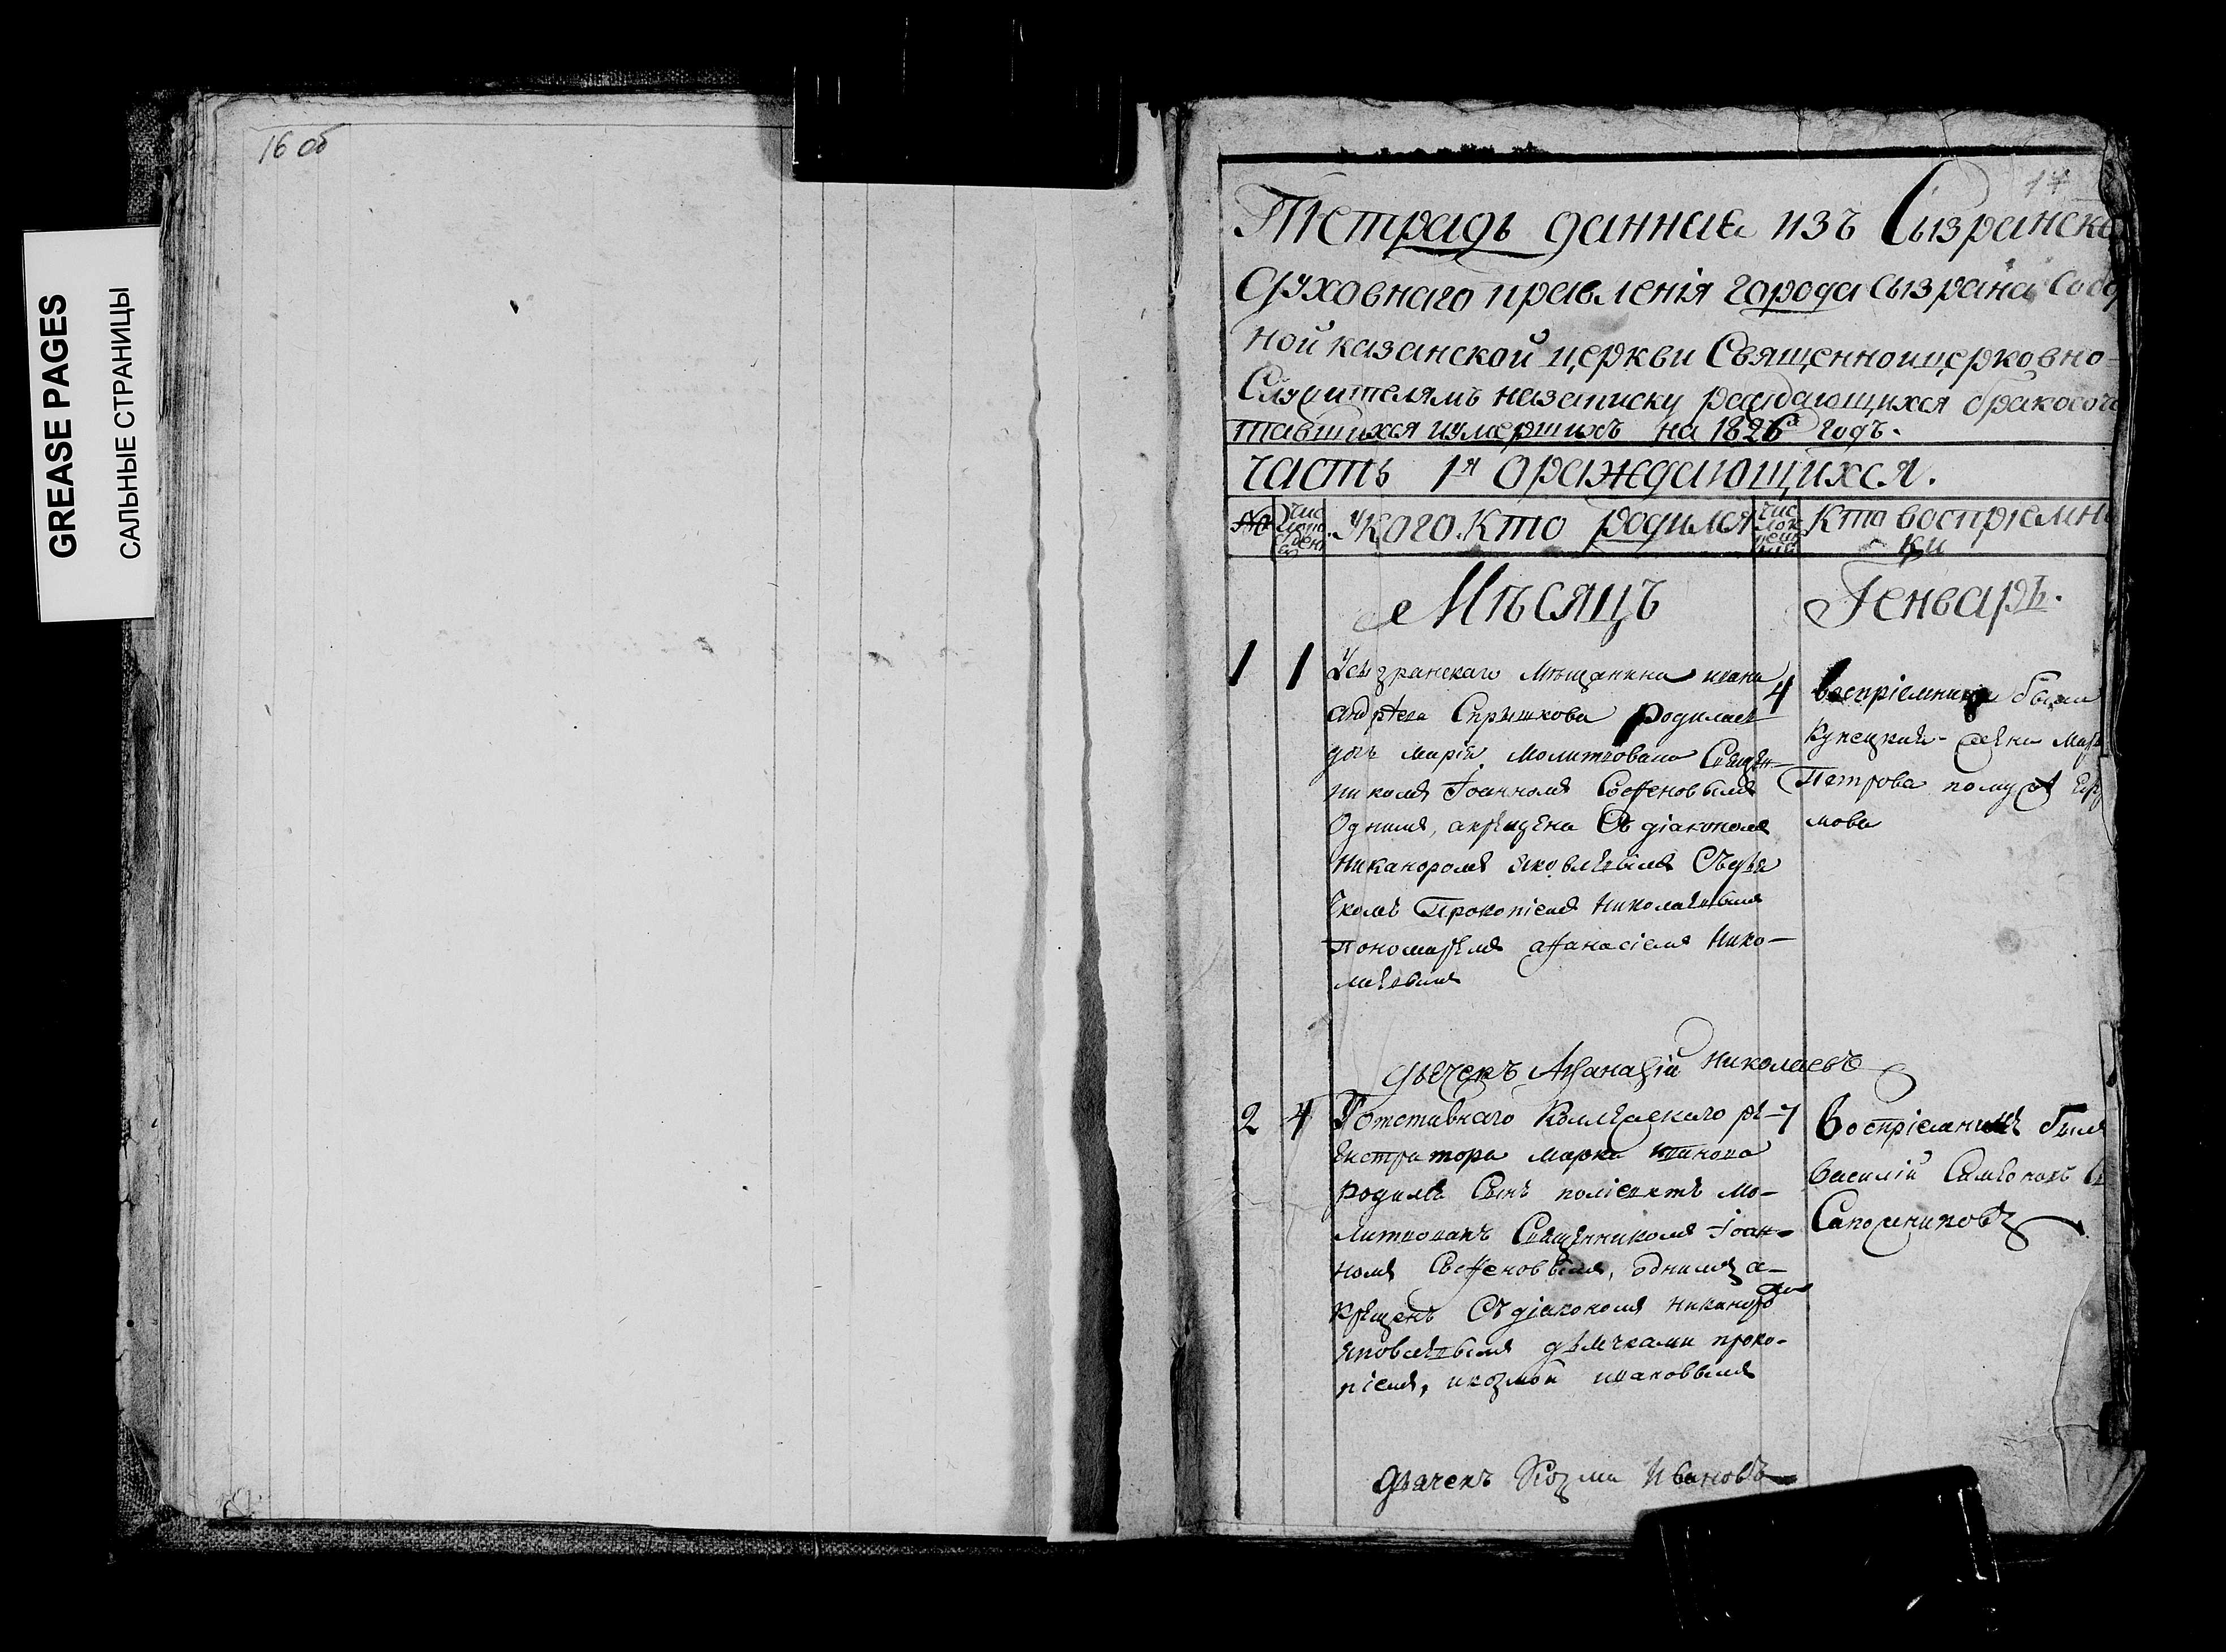 16 об
GREASE PAGES
САЛЬНЫЕ СТРАНИЦЫ
17
Тетрадь данная изъ Сызранска
Духовнаго правленія города Сызрана Собо
ной казанской церкви Священноицерковно-
Служителямъ назаписку раждающихся бракосоче
тавшихся иумершихъ на 1826й годъ.
часть 1я ораждающихся.
№
Число
дене
Укого. Кто родился
Чис
ло
Кто воспріемни
ки
Мѣсяцъ Генварь.
1 1 Усызранскаго Мѣщанина ивана
Андрѣева Спрышкова Родилась
дочь марія. молитвована Священ-
никомъ Іоанномъ Соффоновымъ
Однимъ, акрещена Съ діакономъ
Никаноромъ яковлевымъ Съдья
чкомъ Прокопіемъ Николаевымъ
Пономаремъ афанасіемъ Нико-
лаевымъ
4 воспріемница была
Купецкая жена Мар
Петрова помужѣ
мова
дьячекъ Афанасій Николаевъ
2 4 Уотставнаго Коллежскаго ре-
гистратора марка иванова
родился Сынъ поліевктъ мо-
литвованъ Священникомъ Іоан-
номъ Соффоновымъ, однимъ а-
крещенъ Съ діакономъ никаноро
мъ
яковлевымъ дьячками проко-
піемъ, икозмой ивановымъ
7 Воспріемникъ былъ
василій Симеоновъ
Сапожниковъ
Дьячекъ Козма Ивановъ